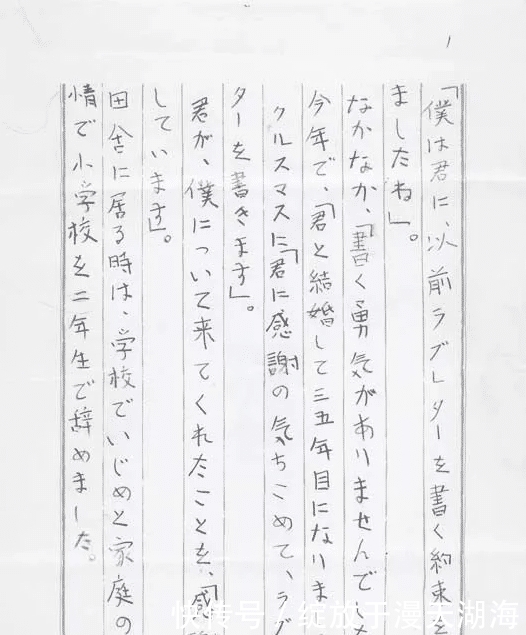 1
「僕は君に、以前ラブレターを書く約束を
ましたね」。
なかなか、「書く勇気がありませんでした
今年で、「君と結婚して三五年目になりま
クルスマスに「君に感謝の気ちこめて、ラブ
ターを書きます」。
君が、僕について来てくれたことを、「感
しています」。
田舎に居る時は、学校でいじめと家庭の
情で小学校を二年生で辞めました。
快传号/绽放于漫天湖海